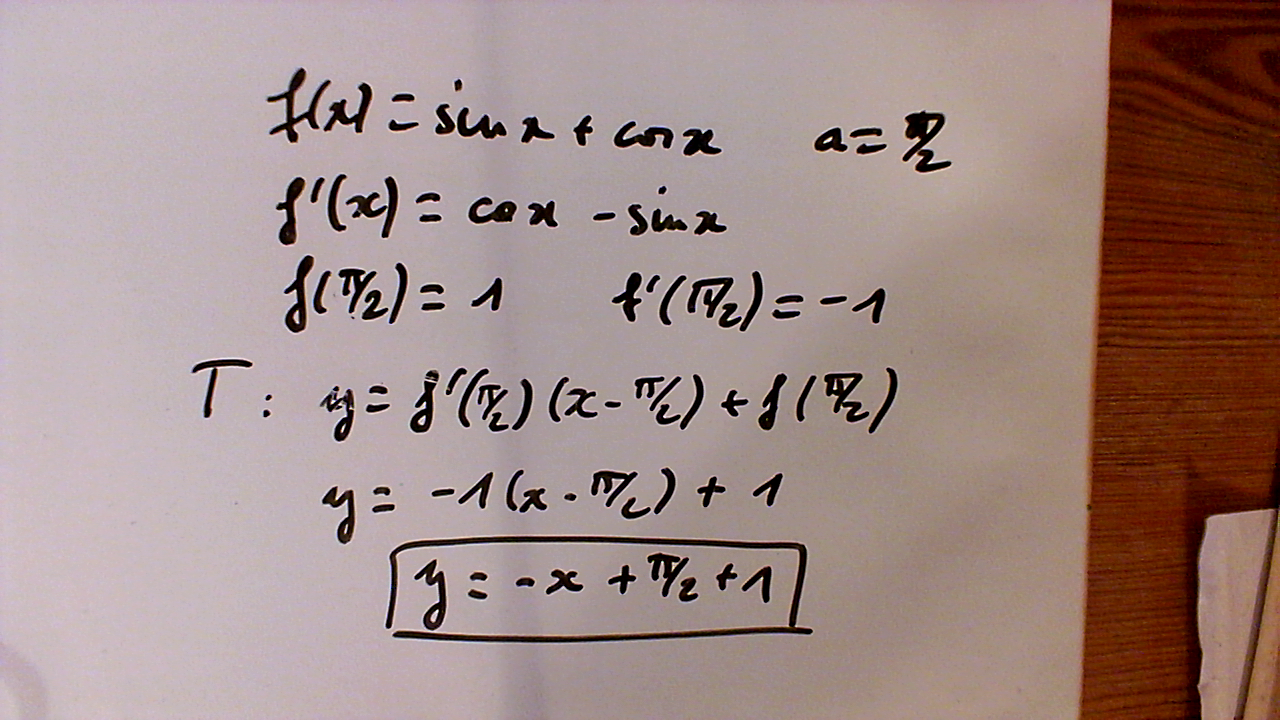 f(x) = sin x + cos x a = π/2
f'(x) = cos x - sin x
f(π/2) = 1 f'(π/2) = -1
T : y = f'(π/2) (x - π/2) + f(π/2)
y = -1 (x - π/2) + 1
y = -x + π/2 + 1